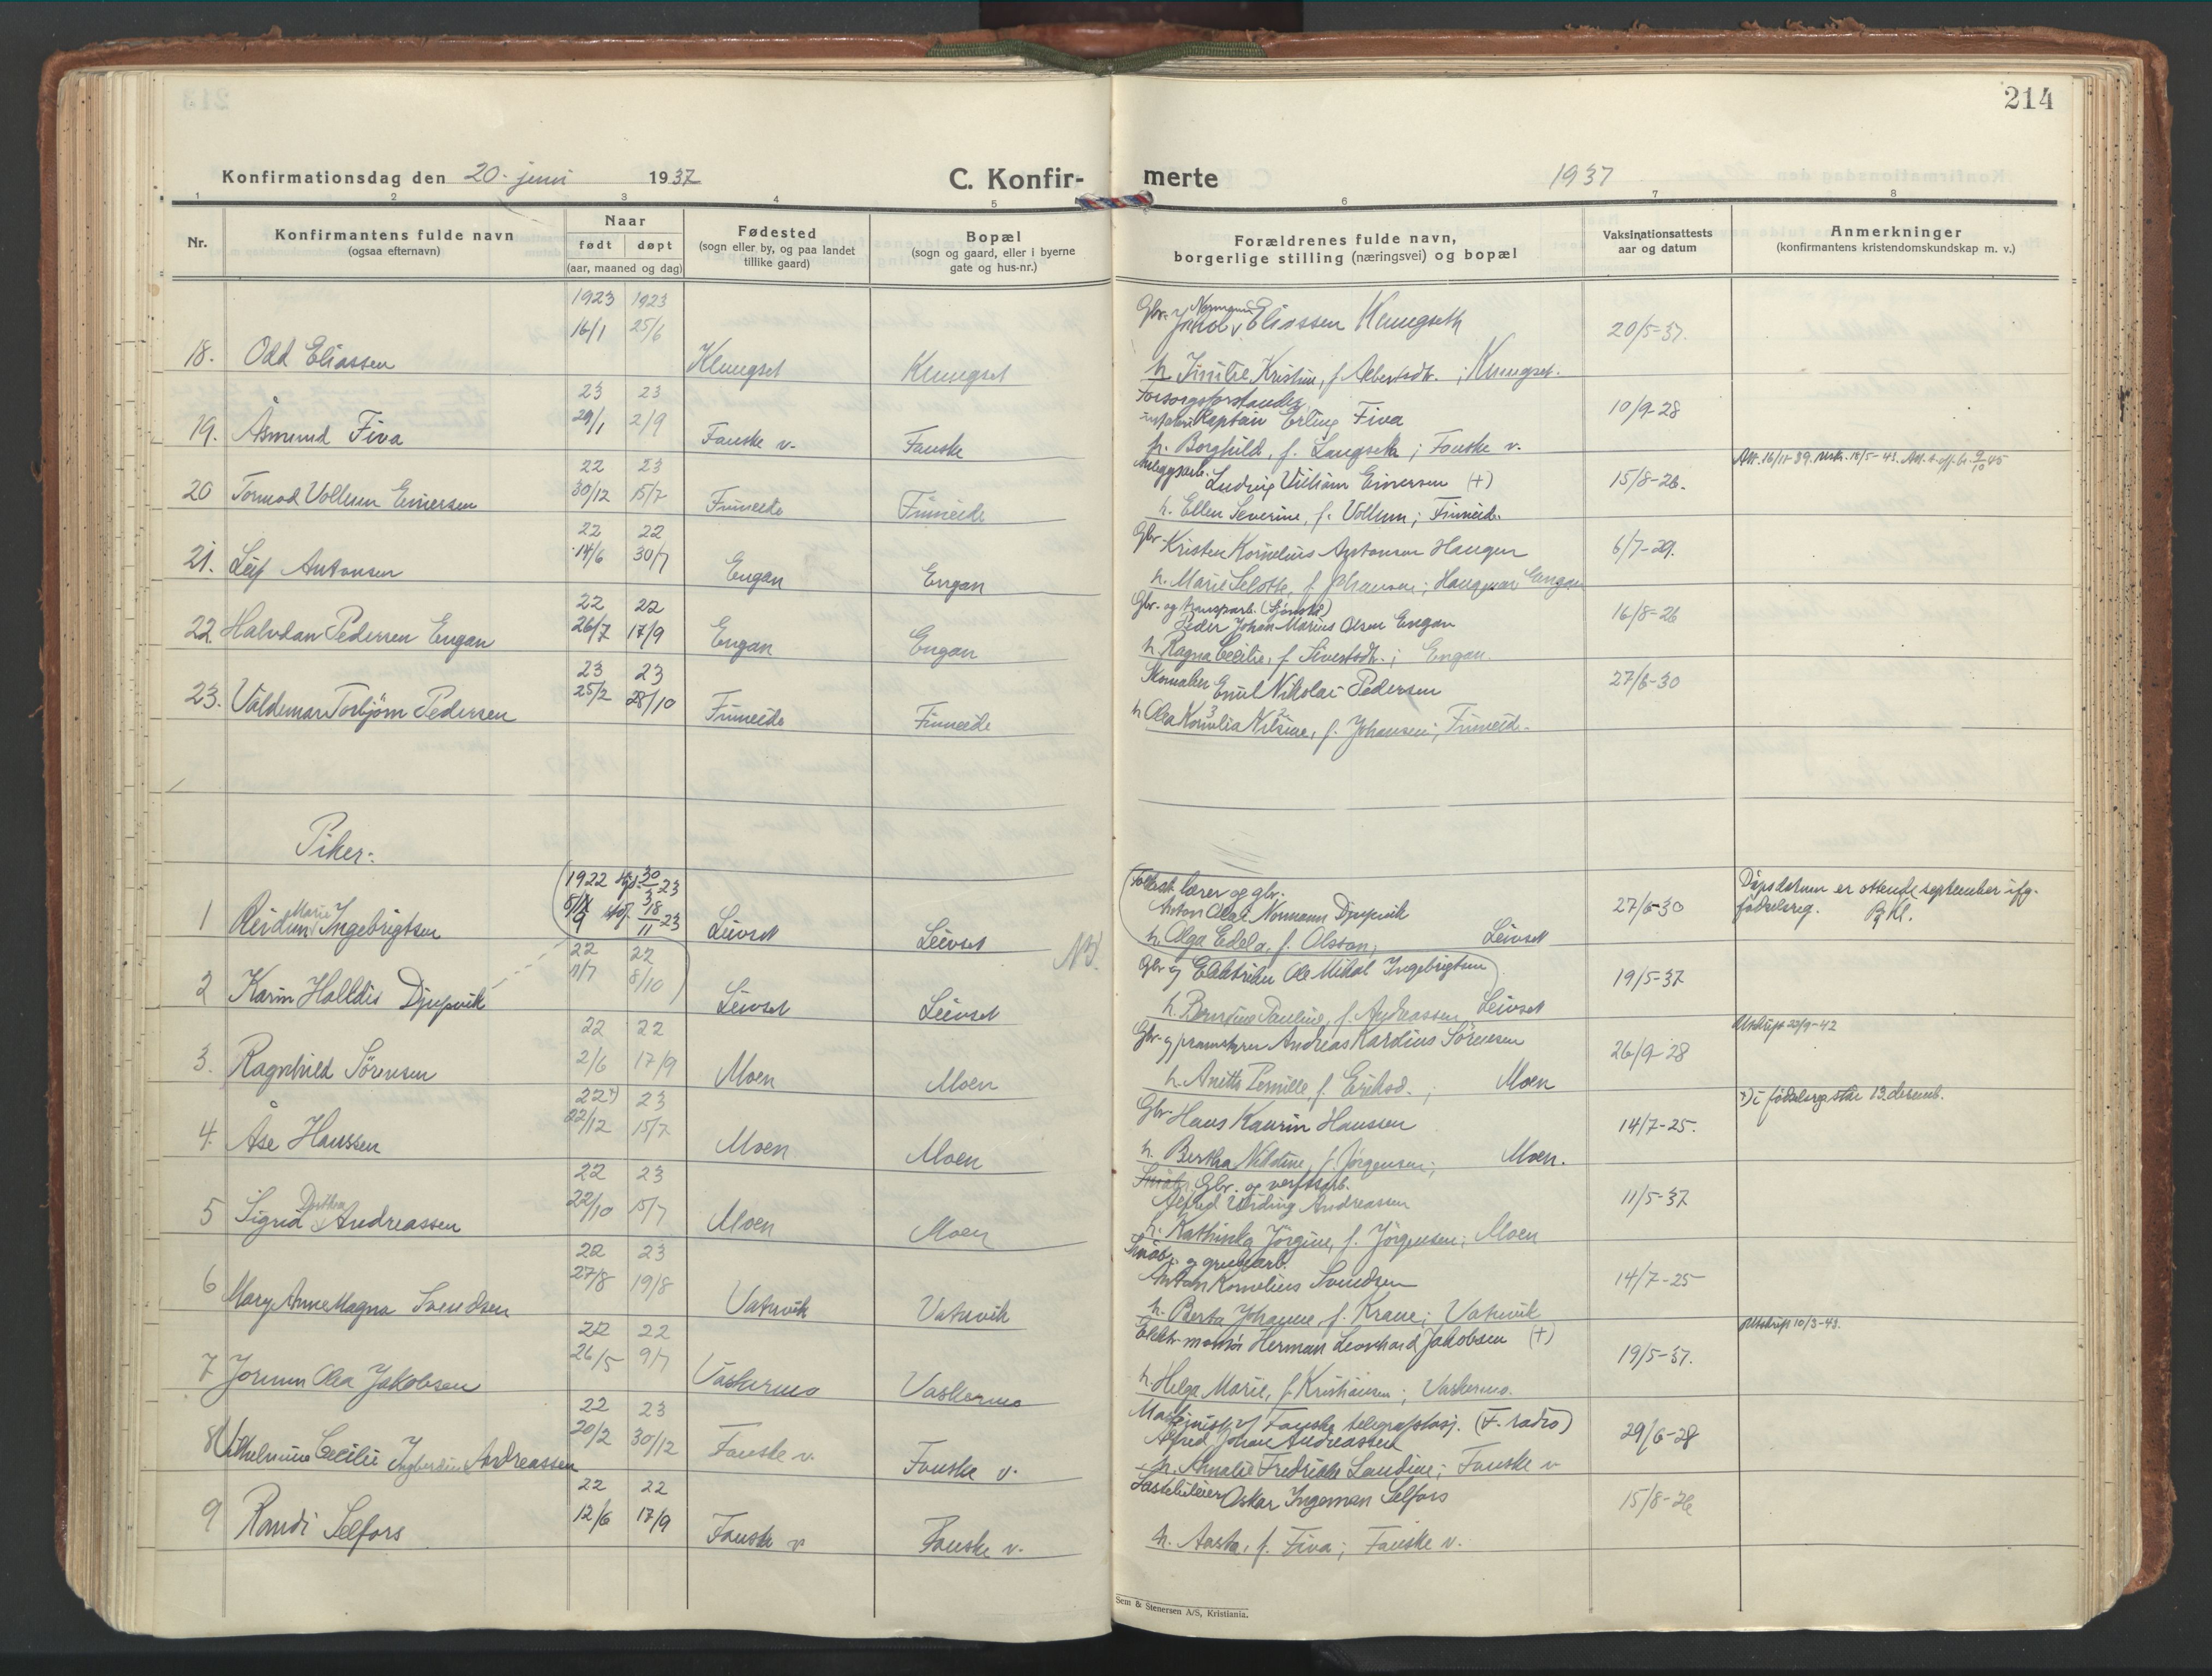 214
Konfirmationsdag den 20. juni 1937
C. Konfirmerte
1937
1 2 3 4 5 6 7 8
Nr.
Konfirmantens fulde navn
(ogsaa efternavn)
Naar
født døpt
(aar, maaned og dag)
Fødested
(sogn eller by, og paa landet
tillike gaard)
Bopæl
(sogn og gaard, eller i byerne
gate og hus-nr.)
Forældrenes fulde navn,
borgerlige stilling (næringsvei) og bopæl
Vaksinationsattests
aar og datum
Anmerkninger
(konfirmantens kristendomskundskap m. v.)
1923 1923
16/1 25/6
18. Odd Eliassen Klungset Klungset
Eliassen Klungseth 20/5-37.
h. Emilie Kristine, f. Albertsdtr. ; Klungset.
23 23
29/1 2/9
19. Åsmund Fiva Fauske v. Fauske
Forsorgsforstander
Kaptein Erling Fiva 10/9-28
h. Borghild, f. Langseth ; Fauske v.
22 23
30/12 15/7
20 Tormod Vollum Einersen Finneide Finneide
Anleggsarb. Ludvig William Einersen (+) 15/8-26.
h. Ellen Severine, f. Vollum ; Finneid.
22 22
14/6 30/7
21. Leif Antonsen Engan Engan
Gbr. Kristen Kornelius Antonsen Haugen 6/7-29.
h. Marie Selotte, f. Johansen ; Engan
22 22
26/7 17/9
22. Halvdan Pedersen Engan Engan Engan
Gbr. og transparb. (Sjønstå)
Peder Johan Marius Olsen Engan 16/8-26
h. Ragna Cecilie, f. Sivertsdtr. ; Engan.
23 23
25/2 28/10
23. Valdemar Torbjørn Pedersen Finneide Finneide
Skomaker Emil Nikolai Pedersen 27/6-30
h Olea Kornelia Nilsine, f. Johansen ; Finneid.
Piker:
1922 30/3 23
9 18/11 23
1 Reidun Marie Ingebrigtsen Leivset Leivset
lærer og gbr.
Anton Olai Normann Djupvik 27/6-30
h. Olga Edela, f. Olsson ; Leivset
Dåpsdatum er ottende september ifg.
fødselsreg. Kl.
NB.
22 22
11/7 8/10
2 Karin Halldis Djupvik Leivset Leivset
Gbr og Elektriker Ole Mikal Ingebrigtsen 19/5-37
h. Berntine Pauline, f. Andreassen Leivset
22 22
2/6 17/9
3. Ragnhild Sørensen Moen Moen
Gbr. og Andreas Kardius Sørensen 26/9-28
h. Anitte Pernille, f. Eriksd. ; Moen
Utskrift 22/9-42
22 +) 23
22/12 15/7
4. Åse Hanssen Moen Moen
Gbr. Hans Kaurin Hanssen 14/7-25.
h. Bertha Nikoline, f. Jørgensen ; Moen.
+) i fødselsreg. står 13. desemb.
22 23
22/10 15/7
5 Sigrid Dorthea Andreassen Moen Moen
Gbr. og verftsarb.
Alfred Andreassen 11/5-37
h. Kathinka Jørgine, f. Jørgensen ; Moen
22 23
27/8 19/8
6 Mary Anne Magna Svendsen Vatnvik Vatnvik
Småbr. og grubearb.
Anton Kornelius Svendsen 14/7-25
h. Berta Johanne f. Krane ; Vatnvik
22 22
26/5 9/7
7 Jorunn Olea Jakobsen Vaskermo Vaskermo
Elektr. montør Herman Leonhard Jakobsen (+) 19/5-37.
h. Helga Marie, f. Kristiansen ; Vaskermo.
Utskrift 10/3-43.
22 23
20/2 30/12
8 Vilhelmine Cecilie Ingberdine Andreassen Fauske v. Fauske v.
Maskinist v/ Fauske telegrafstasj. (F. radio)
Alfred Johan Andreassen 29/6-28
h. Amalie Fredrikke Landine ; Fauske v
22 22
12/6 17/9
9 Randi Selfors Fauske v Fauske v.
Lastebileier Oskar Ingeman Selfors 15/8-26
h. Aasta, f. Fiva ; Fauske v.
Sem & Stenersen A/S, Kristiania.